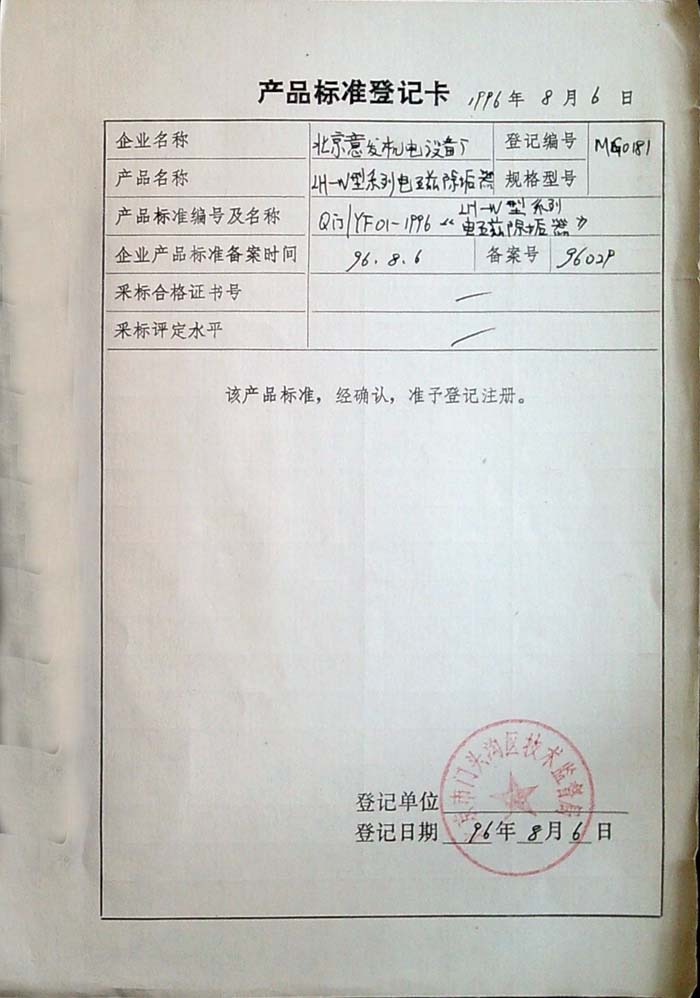 产品标准登记卡 1996年8月6日
企业名称 北京意发机电设备厂 登记编号 MG0181
产品名称 LH-W型系列电磁除垢器 规格型号
产品标准编号及名称 Q门/YF01-1996《LH-W型系列电磁除垢器》
企业产品标准备案时间 96.8.6 备案号 96029
采标合格证书号 —
采标评定水平 —
该产品标准，经确认，准予登记注册。
京市门头沟区技术监督局
登记单位
登记日期 96年8月6日